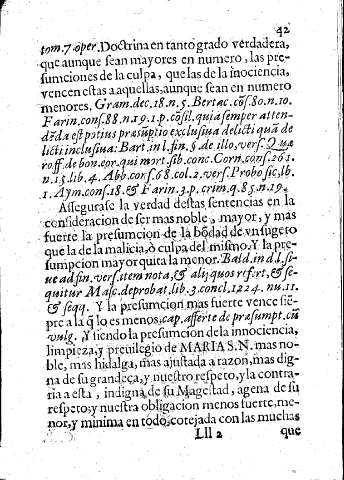 42
tom.7.oper. Doctrina en tanto grado verdadera,
que aunque sean mayores en numero, las pre-
sumciones de la culpa, que las de la inociencia,
vencen estas a aquellas, aunque sean en numero
menores, Gram. dec. 18. n. 5. Bertac. cõs. 80. n. 10.
Farin. cons. 88. n. 19. 1. p. cõsil. quia semper atten-
dēda est potius præsūptio exclusiua delicti quā de
licti inclusiua: Bart. in l. fin. §. de illo, vers. Quæ
roff. de bon. eor. qui mort. sib. conc. Corn. cons. 261
n. 15. lib. 4. Abb. cons. 68. col. 2. vers. Probo sic, lb.
1. Aym. cons. 18. & Farin. 3. p. crim. q. 85. n. 19.
Assegurase la verdad destas sentencias en la
consideracion de ser mas noble, mayor, y mas
fuerte la presumcion de la bōdad de vn sugeto
que la de la malicia, ò culpa del mismo. Y la pre-
sumpcion mayor quita la menor. Bald. in d. l. si-
ue ad fin. vers. item nota, & aliquos refert, & se-
quitur Masc. de probat. lib. 3. concl. 1224. nu. 11.
& seqq. Y la presumcion mas fuerte vence siē-
pre a la q̃ lo es menos, cap. afferte de præsumpt. cū
vulg. Y siendo la presumcion de la innociencia,
limpieza, y preuilegio de MARIA S.N. mas no-
ble, mas hidalga, mas ajustada a razon, mas dig-
na de su grandeça, y nuestro respeto, y la contra-
ria a esta, indigna de su Magestad, agena de su
respeto, y nuestra obligacion menos fuerte, me-
nor, y minima en todo, cotejada con las muchas
Lll 2 que